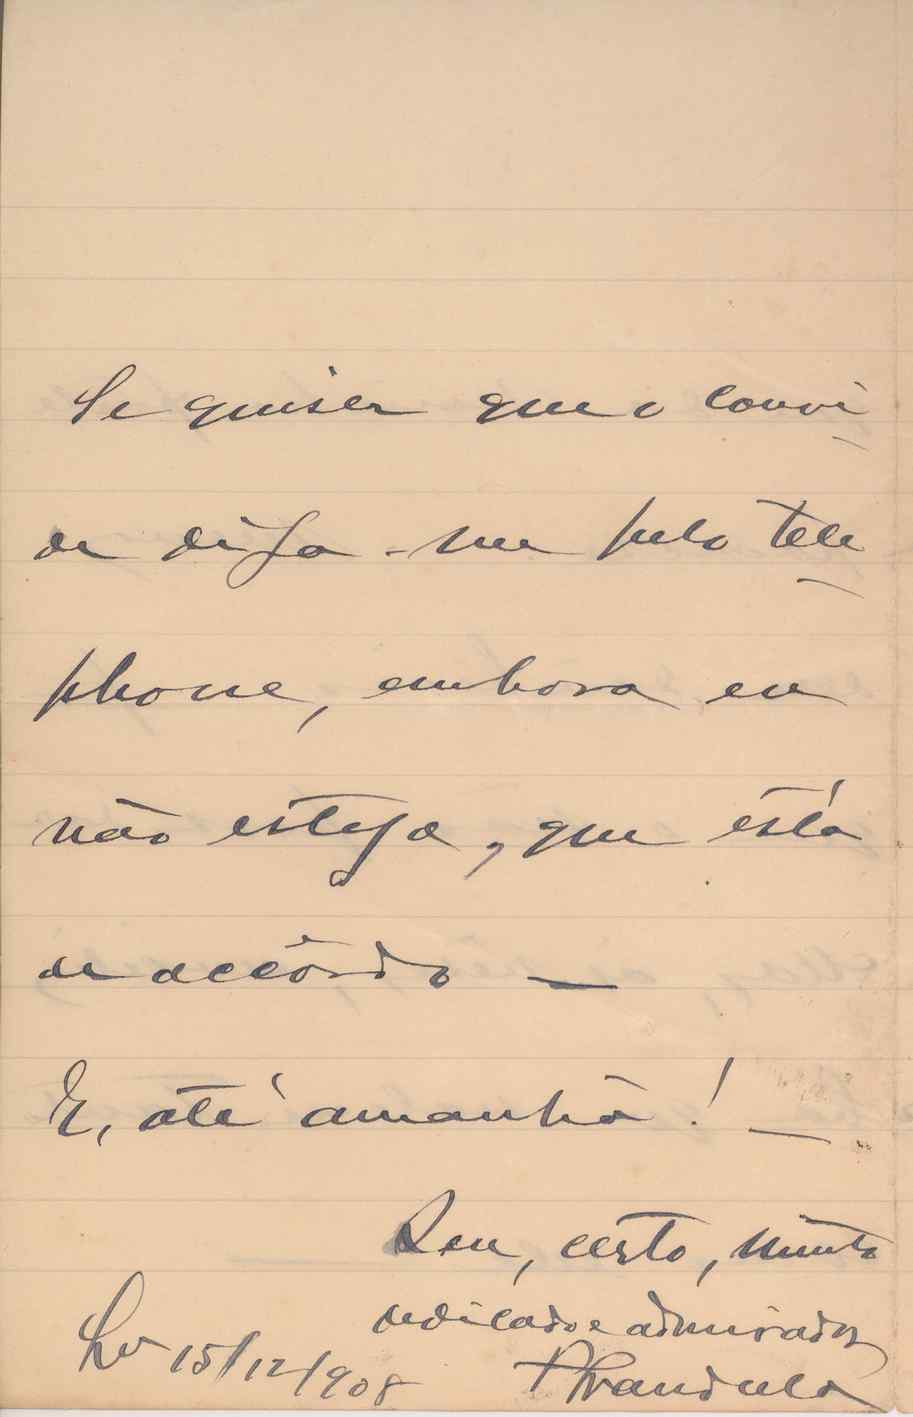 Se quiser que o convi-
de diga-me pelo tele-
phone, embora eu
não esteja, que está
de accôrdo —
E, até amanhã! —
Seu, certo, muito
dedicado e admirador
15/12/908